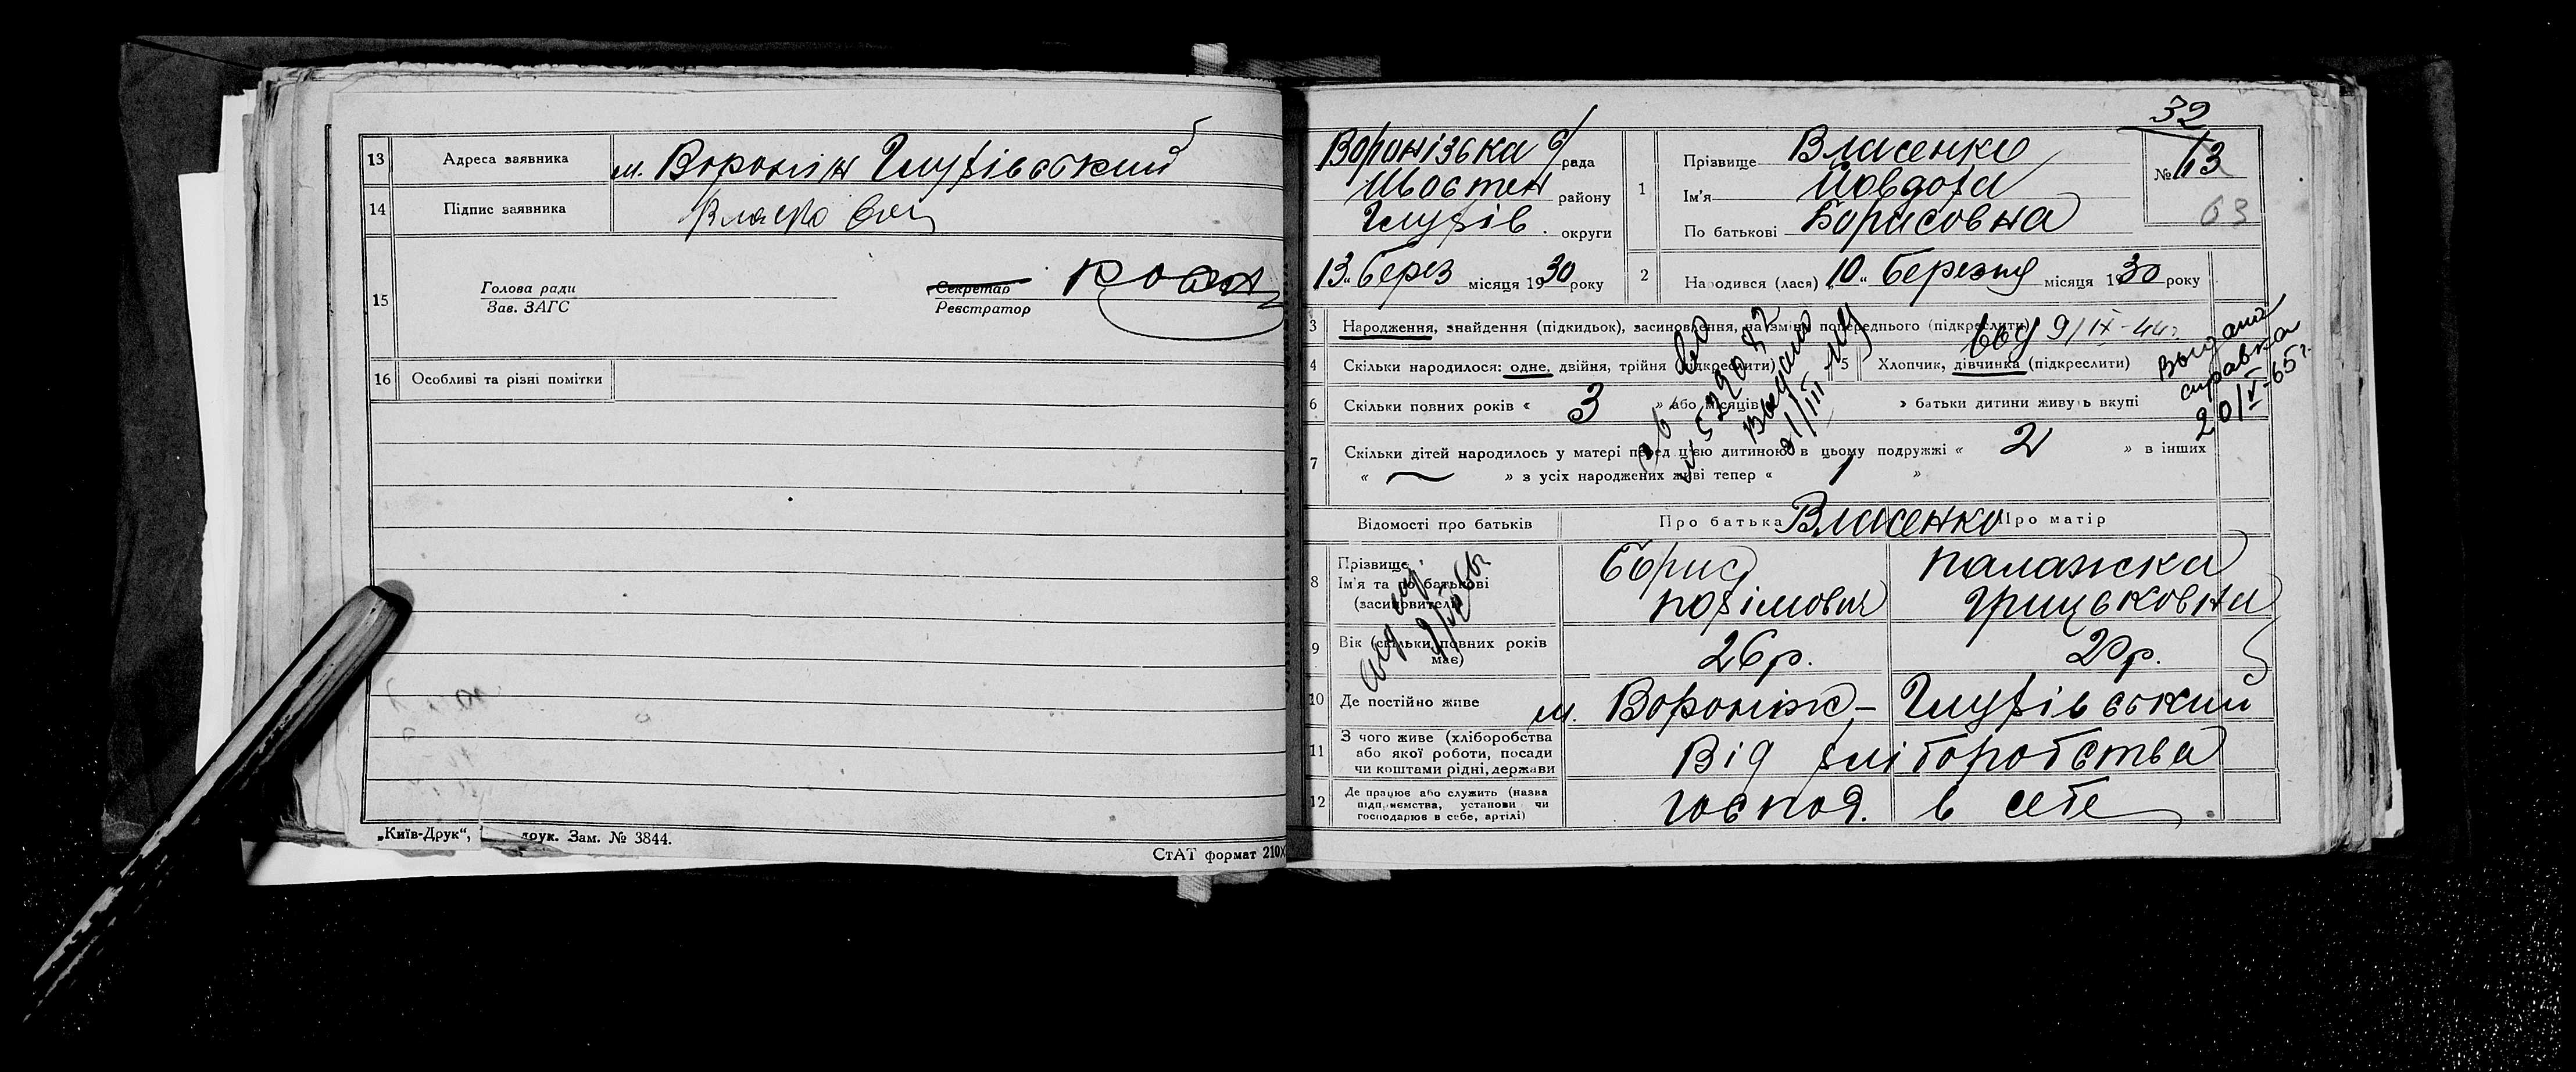 13 Адреса заявника м. Вороніж Глухівський
14 Підпис заявника
15 Голова ради
Зав. ЗАГС
Секретар
Реєстратор
16 Особливі та різні помітки
„Київ-Друк“, друк. Зам. № 3844.
СтАТ формат 210х
32
Воронізька с/рада
Шостен району
Глухів. округи
1 Прізвище Власенко
Ім'я Йовдоха
По батькові Борисовна
№ 63
63
13 „ берез місяця 1930 року
2 Народився (лася) „10“ березня місяця 1930 року
3 Народження, знайдення (підкидьок), засиновлення, на зміну попереднього (підкреслити)
9/IX-44г.
4 Скільки народилося: одне, двійня, трійня (підкреслити)
5 Хлопчик, дівчинка (підкреслити)
Выдана
справка
20/V-65г.
6 Скільки повних років « 3 » або місяців » батьки дитини живуть вкупі
7 Скільки дітей народилось у матері перед цією дитиною в цьому подружжі « 2 » в інших
« — » з усіх народжених живі тепер « 1 »
Відомості про батьків
Про батька Власенко Про матір
8 Прізвище
Ім'я та по батькові
(засиновителі)
Борис
Юхімович
Палажка
Грицьковна
9 Вік (скільки повних років
має)
26 р.
20 р.
10 Де постійно живе м. Вороніж – Глухівський
11 З чого живе (хліборобства
або якої роботи, посади
чи коштами рідні, держави
Від хліборобства
12 Де працює або служить (назва
підприємства, установи чи
господарює в себе, артілі)
господ. в себе